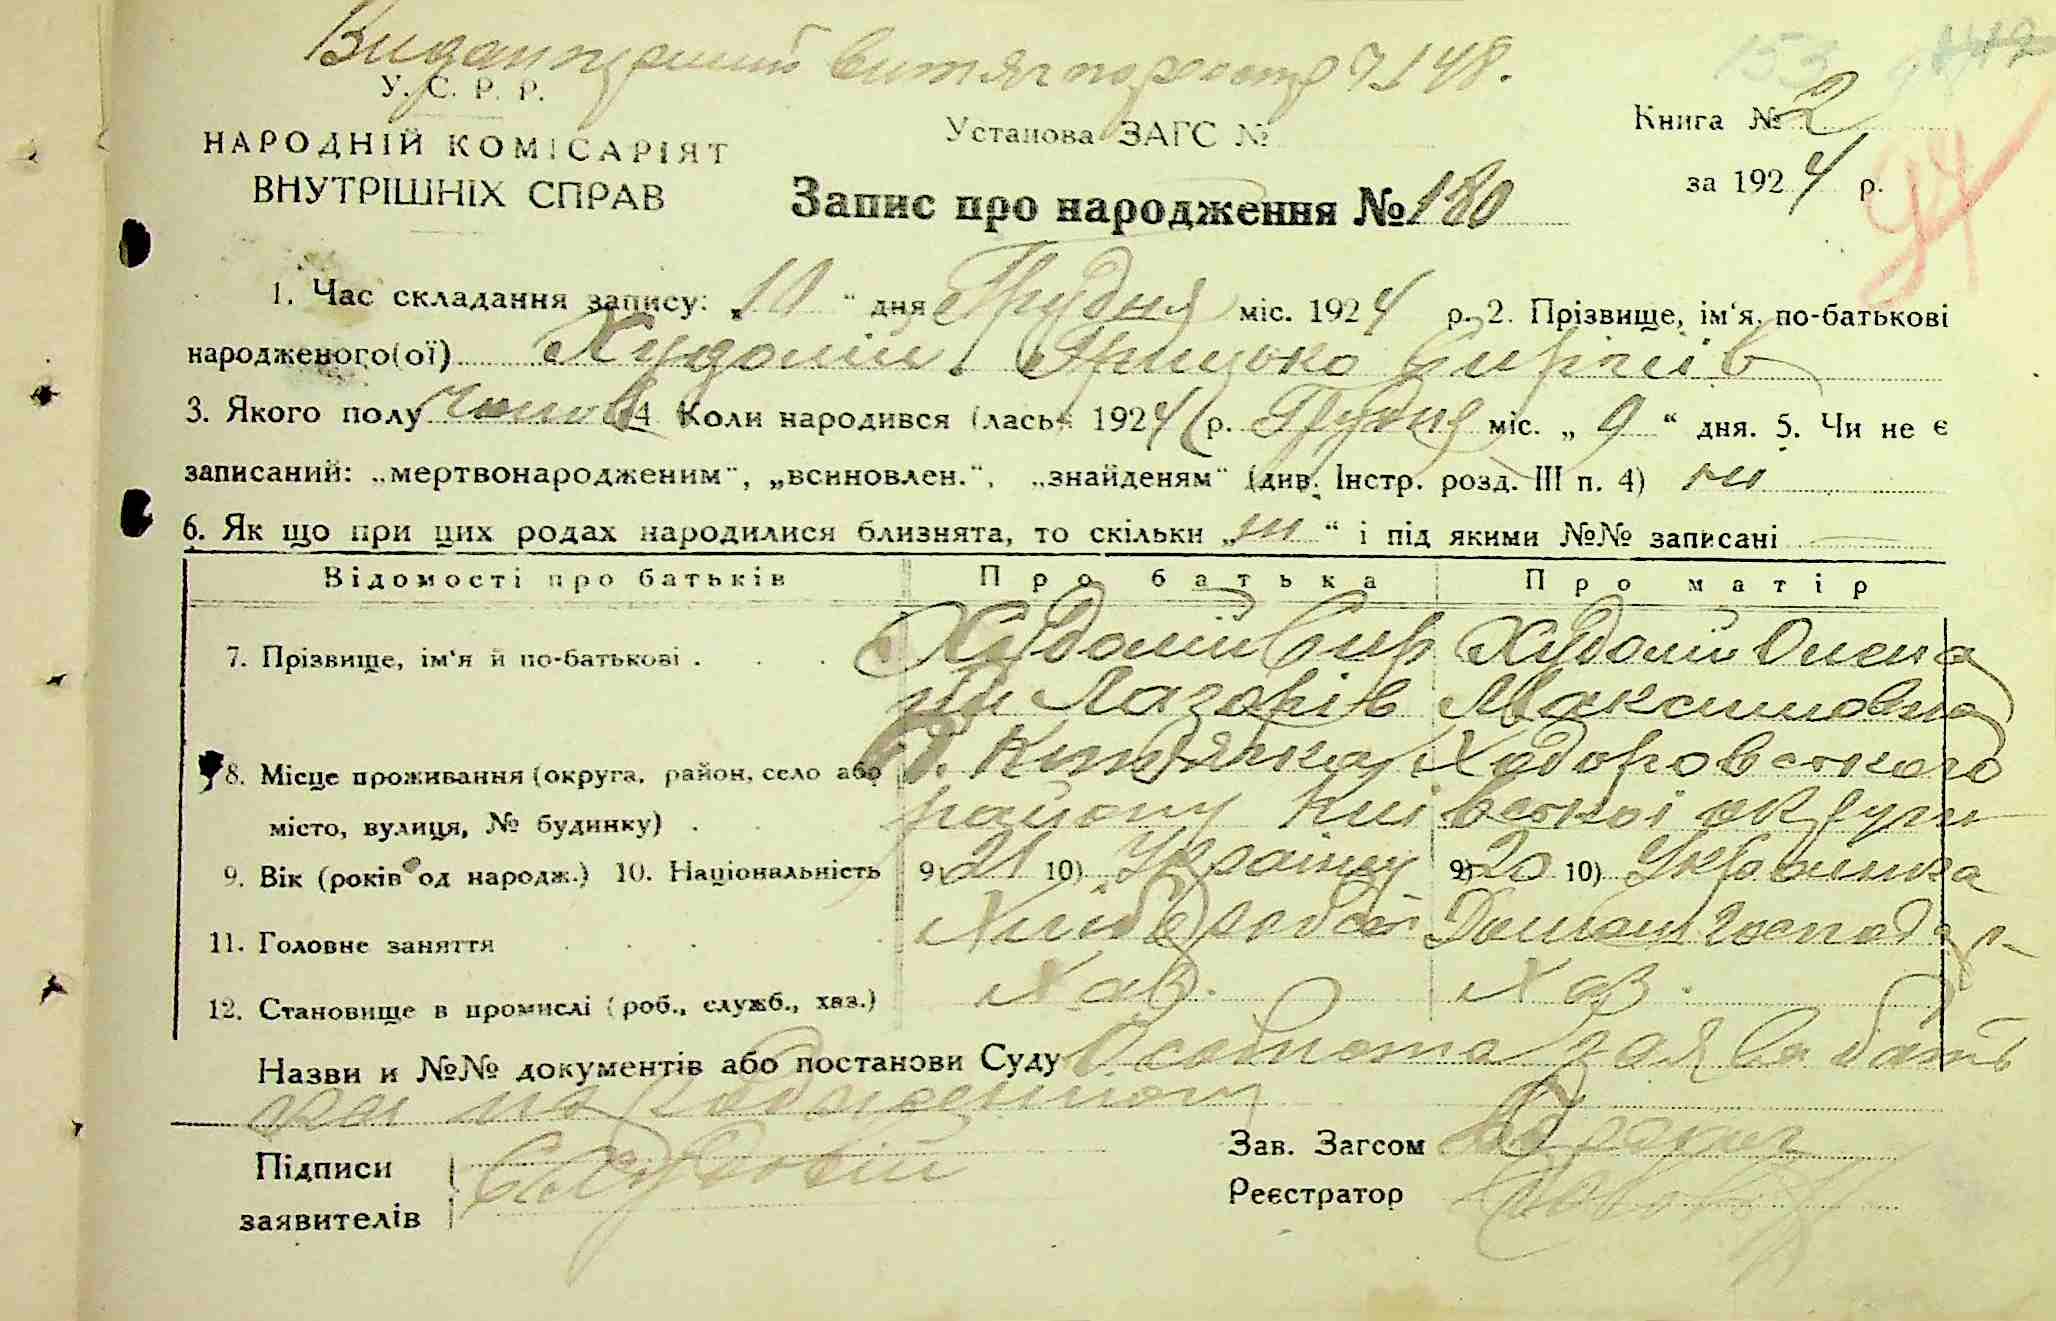 Видан перший витяг по реєстр № 148.
153
У. С. Р. Р.
Книга № 2
НАРОДНІЙ КОМІСАРІЯТ
Установа ЗАГС №
ВНУТРІШНІХ СПРАВ
за 1924 р.
Запис про народження № 180
1. Час складання запису: „10“ дня Грудня міс. 1924 р. 2. Прізвище, ім‘я, по-батькові
народженого(ої) Худолій Грицько Сиргіів
3. Якого полу чолов 4 Коли народився (лась) 1924 р. Грудня міс. „9“ дня. 5. Чи не є
записаний: „мертвонародженим“, „всиновлен.“, „знайденям“ (див. Інстр. розд. III п. 4) ни
6. Як що при цих родах народилися близнята, то скільки „ни“ і під якими №№ записані —
Відомості про батьків Про батька Про матір
7. Прізвище, ім‘я й по-батькові . . . Худолій Сир Худолій Олена
гій Лазорів Максимовна
8. Місце проживання (округа, район, село або Ходоровського
місто, вулиця, № будинку) . району Київської округи
9. Вік (років од народж.) 10. Національність 9) 21 10) Українец 9) 20 10) Українка
11. Головне заняття Хлібороб Домаш господар
12. Становище в промислі (роб., служб., хаз.) Хаз. Хаз.
Назви и №№ документів або постанови Суду Особиста заява бать
ка народженного
Підписи
заявителів
С Худолій
Зав. Загсом
Реєстратор